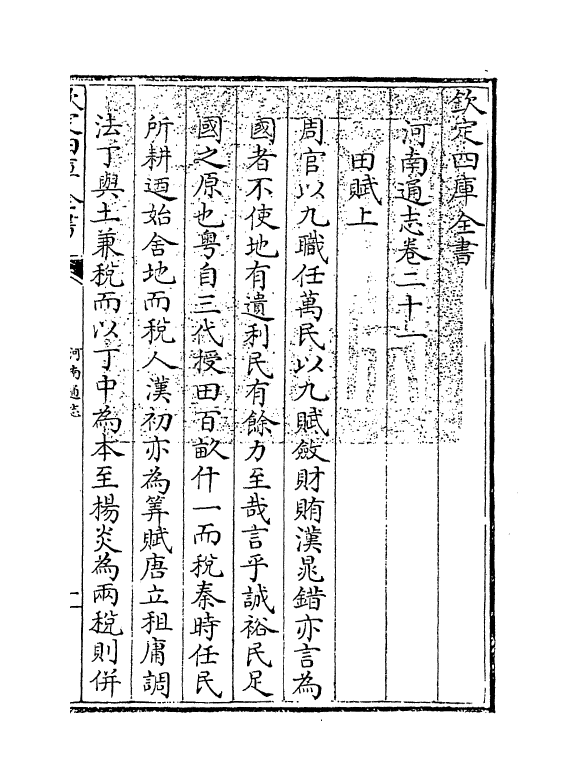 欽定四庫全書
河南通志卷二十一
田賦上
周官以九職任萬民以九賦斂財賄漢鼂錯亦言為
國者不使地有遺利民有餘力至哉言乎誠裕民足
國之原也粤自三代授田百畝什一而稅秦時任民
所耕迺始舍地而稅人漢初亦為筭賦唐立租庸調
法丁與土兼稅而以丁中為本至楊炎為兩稅則併
欽定四庫全書
河南通志
一